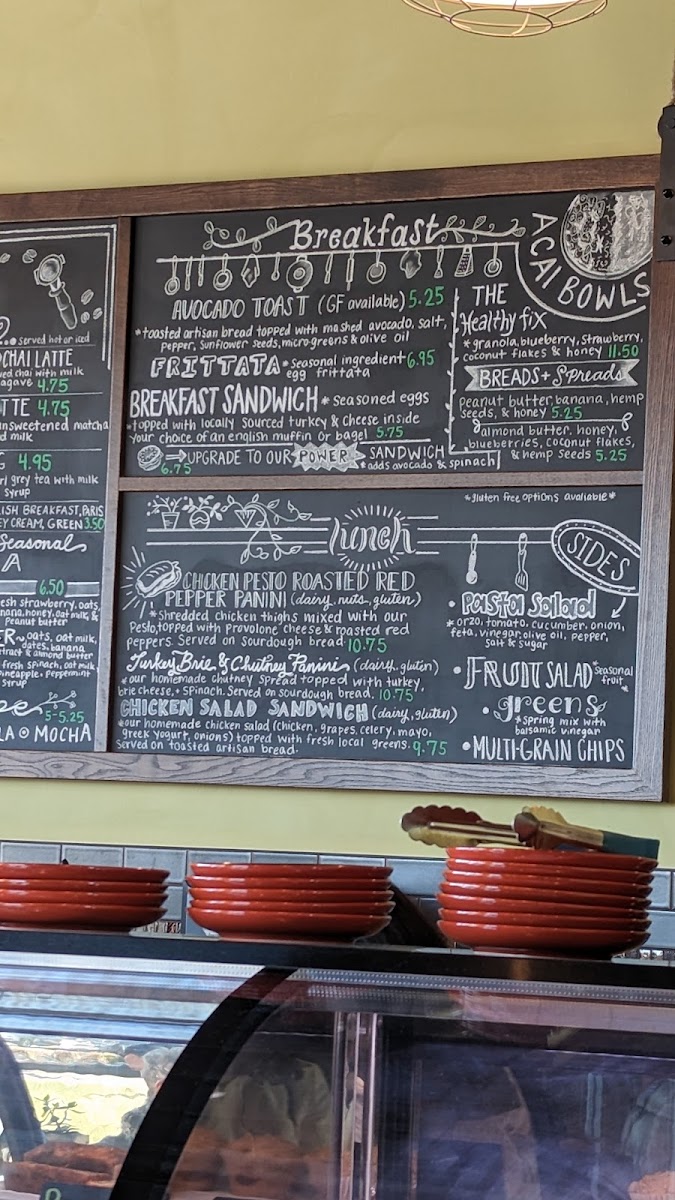 served hot or iced
CHAI LATTE
ed chai with milk
agave 4.75
TTE 4.75
unsweetened matcha
d milk
4.95
rl grey tea with milk
syrup
LISH BREAKFAST, PARIS
EY CREAM, GREEN 3.50
Seasonal
A
6.50
esh strawberry, oats,
nana, honey, oat milk, &
Peanut butter
ER~ oats, oat milk,
dates, banana
tract & almond butter
fresh spinach, oat milk,
pineapple + peppermint
syrup
5-5.25
LA MOCHA
Breakfast
AVOCADO TOAST (GF available) 5.25
*toasted artisan bread topped with mashed avocado, salt,
Pepper, Sunflower seeds, microgreens & olive oil
FRITTATA *seasonal ingredient 6.95
egg frittata
BREAKFAST SANDWICH * seasoned eggs
*topped with locally sourced turkey & cheese inside
your choice of an english muffin or bagel 5.75
UPGRADE TO OUR POWER SANDWICH
6.75 *adds avocado & spinach
ACAI BOWLS
THE
Healthy fix
*granola, blueberry, strawberry,
coconut flakes & honey 11.50
BREADS + Spreads
Peanut butter, banana, hemp
Seeds, & honey 5.25
almond butter, honey,
blueberries, coconut flakes,
& hemp seeds 5.25
*gluten free options avaliable*
lunch
CHICKEN PESTO ROASTED RED
PEPPER PANINI (dairy, nuts, gluten)
*Shredded chicken thighs mixed with our
Pesto, topped with Provolone cheese & roasted red
peppers. Served on sourdough bread. 10.75
Turkey Brie & Chutney Panini (dairy, gluten)
*our homemade chutney Spread topped with turkey,
brie cheese, + spinach. Served on sourdough bread. 10.75
CHICKEN SALAD SANDWICH (dairy, gluten)
*our homemade chicken salad (chicken, grapes, celery, mayo,
greek yogurt, onions) topped with fresh local greens. 9.75
Served on toasted artisan bread.
SIDES
• Pasta Salad
* orzo, tomato, cucumber, onion,
feta, vinegar, olive oil, pepper,
salt & sugar
• FRUIT SALAD *Seasonal
fruit
• greens
*Spring mix with
balsamic vinegar
• MULTI-GRAIN CHIPS